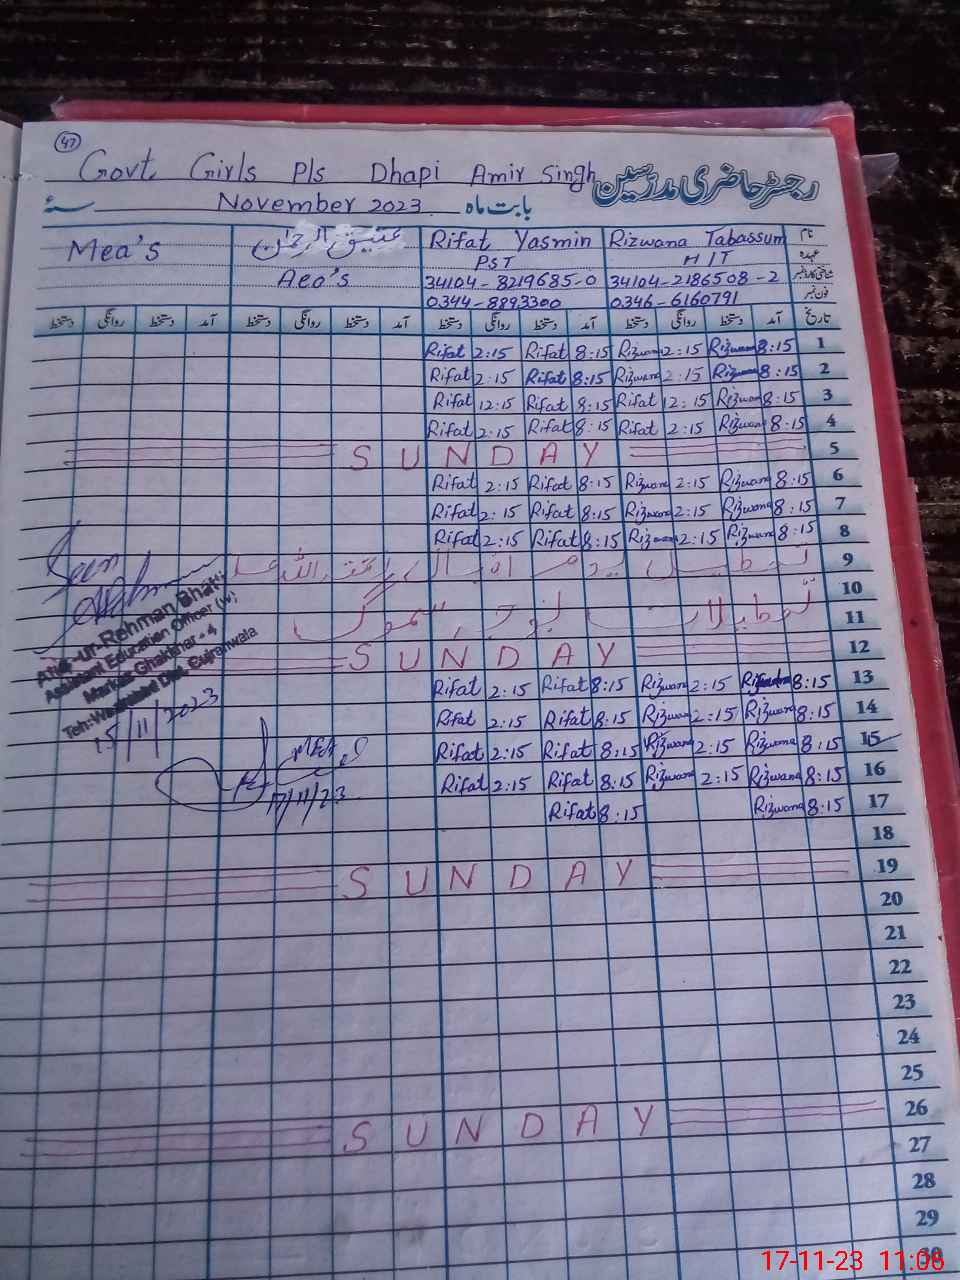 47
Govt. Girls P/s Dhapi Amir Singh رجسٹر حاضری مدرسین
November 2023 بابت ماہ
Mea's عتیق الرحمٰن Rifat Yasmin Rizwana Tabassum نام
Aeo's PST HIT عہدہ
34104-8219685-0 34104-2186508-2 شناختی کارڈ نمبر
0344-8893300 0346-6160791 فون نمبر
تاریخ آمد دستخط روانگی دستخط آمد دستخط روانگی دستخط آمد دستخط روانگی دستخط آمد دستخط روانگی دستخط
Rifat 2:15 Rifat 8:15 Rizwana 2:15 Rizwana 8:15 1
Rifat 2:15 Rifat 8:15 Rizwana 2:15 Rizwana 8:15 2
Rifat 12:15 Rifat 8:15 Rifat 12:15 Rizwana 8:15 3
Rifat 2:15 Rifat 8:15 Rifat 2:15 Rizwana 8:15 4
SUNDAY 5
Rifat 2:15 Rifat 8:15 Rizwana 2:15 Rizwana 8:15 6
Rifat 2:15 Rifat 8:15 Rizwana 2:15 Rizwana 8:15 7
Rifat 2:15 Rifat 8:15 Rizwana 2:15 Rizwana 8:15 8
Seen
تعطیل یوم اقبال 9
10
تعطیلات بوجہ سموگ 11
SUNDAY 12
Atiq-ur-Rehman Bhatti
Assistant Education Officer (W)
Markaz Ghakhar-4
Teh: Wazirabad Dist. Gujranwala
15/11/2023
Rifat 2:15 Rifat 8:15 Rizwana 2:15 8:15 13
Rifat 2:15 Rifat 8:15 Rizwana 2:15 Rizwana 8:15 14
Rifat 2:15 Rifat 8:15 Rizwana 2:15 Rizwana 8:15 15
MEA
Rifat 2:15 Rifat 8:15 Rizwana 2:15 Rizwana 8:15 16
17/11/23
Rifat 8:15 Rizwana 8:15 17
18
SUNDAY 19
20
21
22
23
24
25
SUNDAY 26
27
28
29
30
17-11-23 11:06